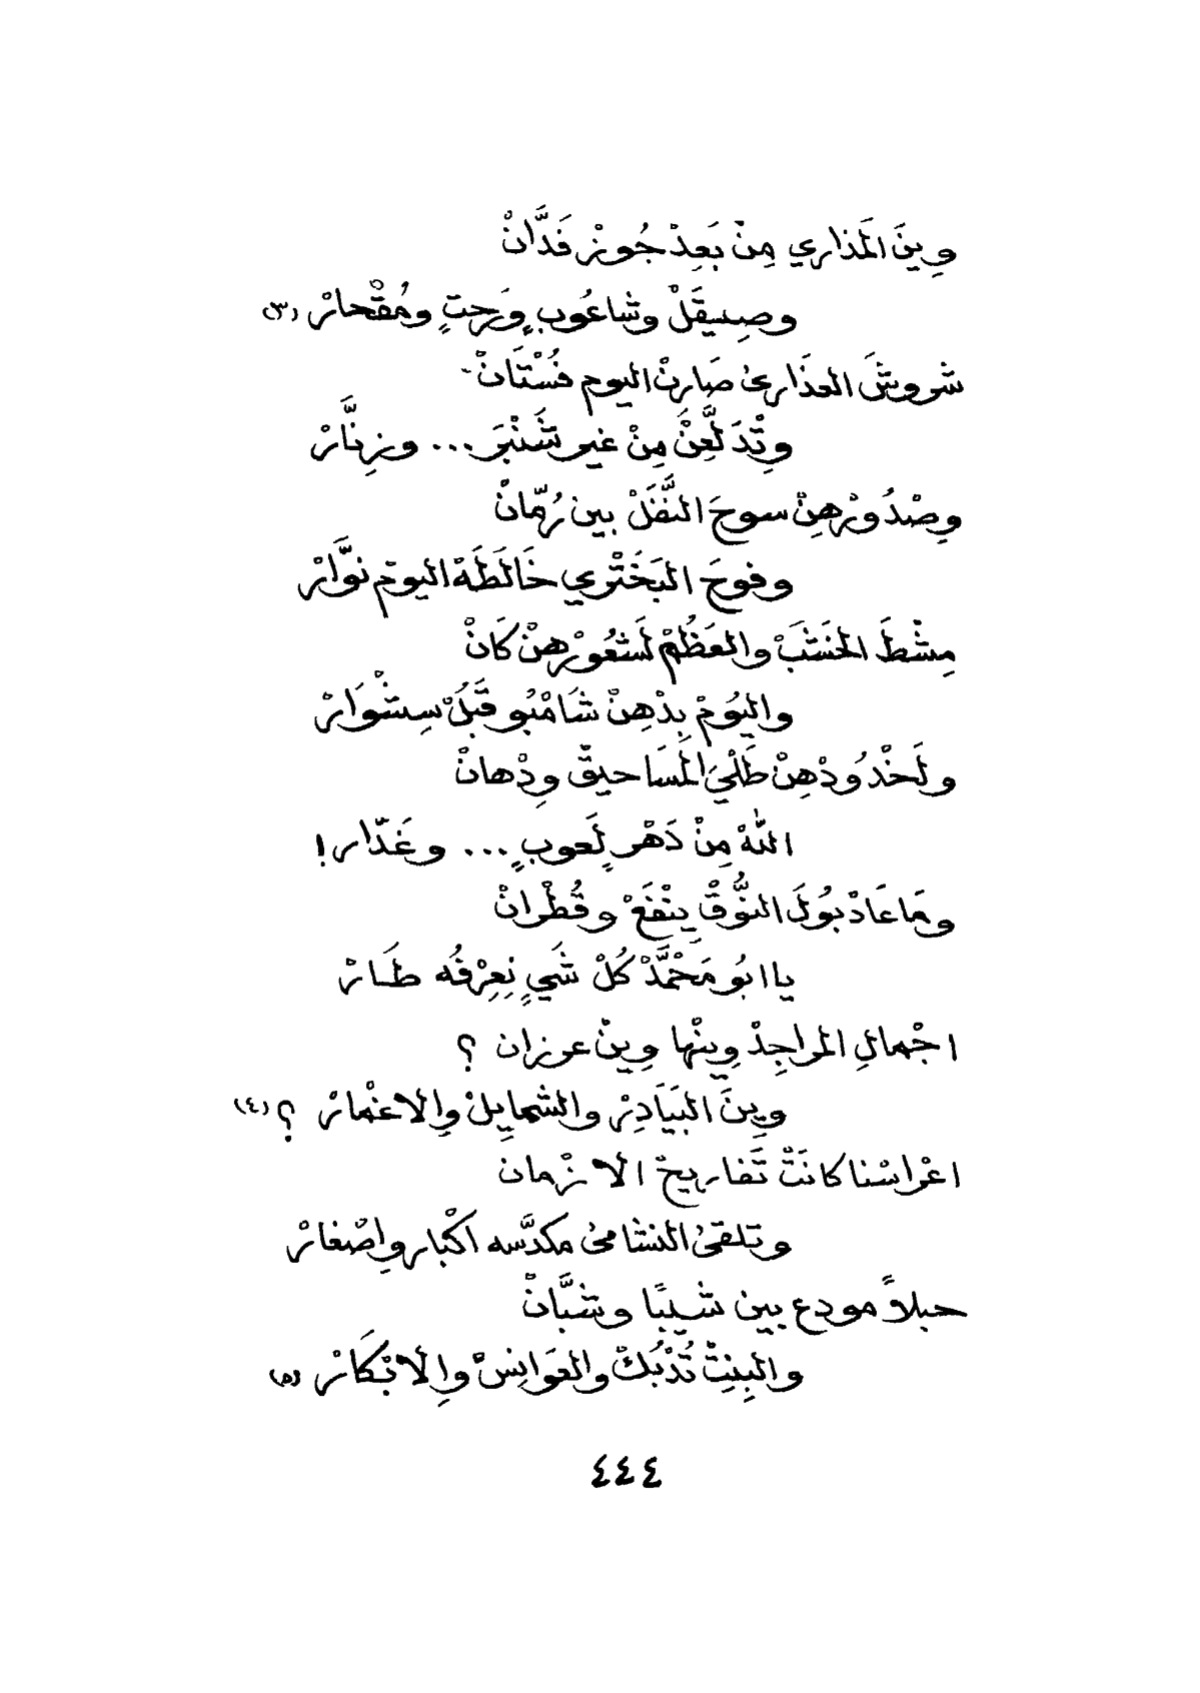 وِينَ المَذاري مِنْ بَعِدْ جُوزْ فَدَّانْ
وصِيقَلْ وشاعُوبٍ وَرَحتٍ ومُقْحارْ (٣)
شروشَ العذَارىْ صَارنْ اليوم فُسْتَانْ
وِتْدَلَّعِنْ مِنْ غير شَنْبَر ... وزِنَّارْ
وِصْدُورْهِنْ سوحَ النَّفَلْ بين رُمّانْ
وفوحَ البَخَتْري خَالَطَهْ اليومْ نوَّارْ
مِشْطَ الخَشَبْ والعَظُمْ لَشعُورْهِنْ كَانْ
واليُومْ بِدْهِنْ شَامْبُو قَبَلْ سِشْوَارْ
ولَخْدُودْهِنْ طَلْيَ المَسَاحيقْ وِدْهانْ
اللهْ مِنْ دَهْرٍ لَعوبٍ ... وغَدّار !
ومَا عَادْ بُولَ النُّوقْ يِنْفَعْ وقُطْرانْ
يا ابُو مَحْمَّدْ كُلْ شَيٍ نِعِرْفُه طَارْ
اجْمالِ المراجِدْ وِينْها وِينْ عرزان ؟
وِينَ البَيَادِرْ والشمايِلْ وِالاغْمارْ ؟ (٤)
اعْراسْنا كانَتْ تَفاريحْ الازْمان
وتلقىْ النشامىْ مكدَّسه اكْبار واصْغارْ
حبلاً مودع بين شيبًا وشبَّانْ
والبِنِتْ تُدْبُكْ والعَوانِسْ وِالابْكَارْ (٥)
٤٤٤